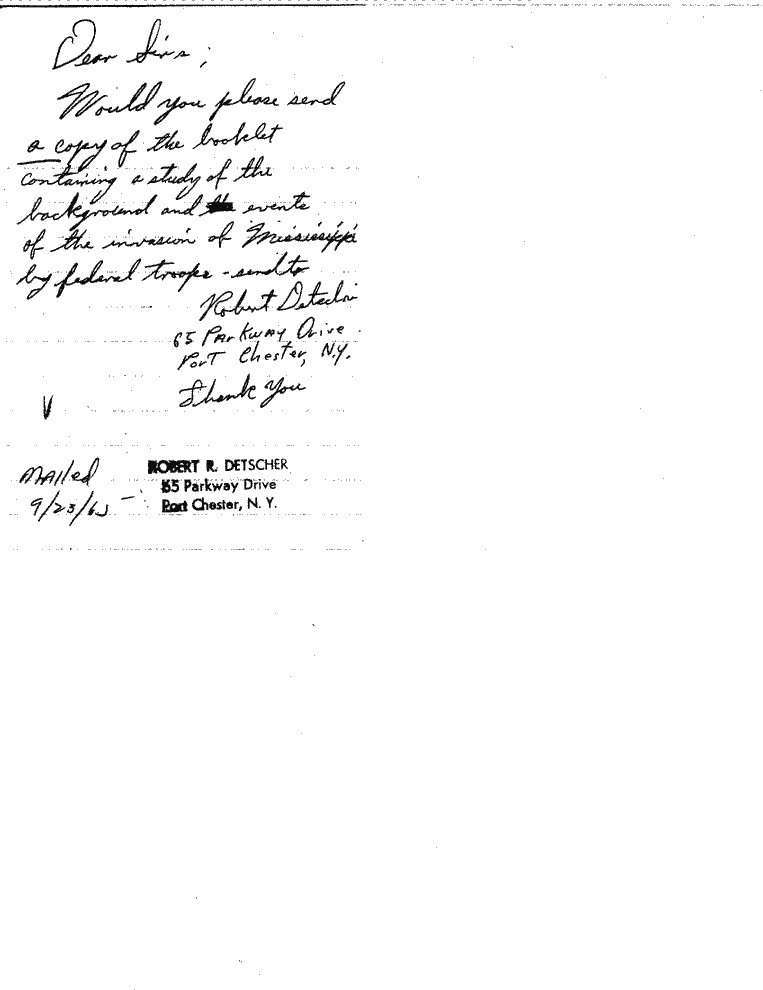 Dear Sirs;
Would you please send
a copy of the booklet
containing a study of the
background and the events
of the invasion of Mississippi
by federal troops - send to
Robert Detscher
65 Parkway Drive
Port Chester, N.Y.
Thank You
V
Mailed
9/23/63 -
ROBERT R. DETSCHER
65 Parkway Drive
Port Chester, N. Y.